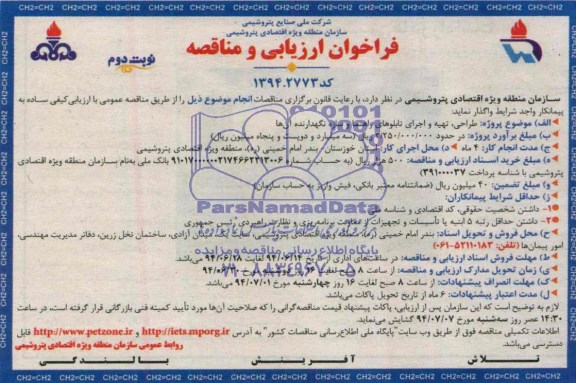 شرکت ملی صنایع پتروشیمی
سازمان منطقه ویژه اقتصادی پتروشیمی
فراخوان ارزیابی و مناقصه
نوبت دوم
کد ۱۳۹۴.۲۷۷۳
سازمان منطقه ویژه اقتصادی پتروشیمی در نظر دارد، با رعایت قانون برگزاری مناقصات انجام موضوع ذیل را از طریق مناقصه عمومی با ارزیابی کیفی ساده به
پیمانکار واجد شرایط واگذار نماید:
الف) موضوع پروژه: طراحی، تهیه و اجرای تابلوهای و نگهدارنده آن‌ها
ب) مبلغ برآورد پروژه: در حدود میلیارد و دویست و پنجاه میلیون ریال)
ج) مدت انجام کار: ۴ ماه د) محل اجرای کار: خوزستان، بندر امام خمینی (ره)، منطقه ویژه اقتصادی پتروشیمی
ه) مبلغ خرید اسناد ارزیابی و مناقصه: ۵۰۰ هزار ریال (به حساب شماره بانک ملی به‌نام سازمان منطقه ویژه اقتصادی
پتروشیمی با شناسه پرداخت
و) مبلغ تضمین: ۴۰ میلیون ریال (ضمانتنامه معتبر بانکی، فیش واریز به حساب سازمان)
ز) حداقل شرایط پیمانکاران:
۱- داشتن شخصیت حقوقی، کد اقتصادی و شناسه ملی
۲- داشتن حداقل رتبه ۵ ابنیه یا تأسیسات و تجهیزات از معاونت برنامه‌ریزی و نظارت راهبردی رئیس جمهوری
ح) محل فروش و تحویل اسناد: بندر امام خمینی (ره)، منطقه ویژه اقتصادی پتروشیمی، سایت یک، خیابان آزادی، ساختمان نخل زرین، دفاتر مدیریت مهندسی،
امور پیمان‌ها (تلفن: ۵۲۱۱۰۱۸۳-۰۶۱)
ط) مهلت فروش اسناد ارزیابی و مناقصه: در ساعت‌های اداری از تاریخ ۹۴/۰۶/۱۴ لغایت ۹۴/۰۶/۲۸
ی) زمان تحویل مدارک ارزیابی و مناقصه: از ساعت ۸ صبح
ک) مهلت انصراف پیشنهادات: از ساعت ۸ صبح لغایت ۱۶ روز چهارشنبه مورخ ۹۴/۰۷/۰۱
ل) مدت اعتبار پیشنهادات: ۶ ماه از تاریخ تحویل پاکات می‌باشد.
لازم به توضیح است که این سازمان پس از ارزیابی، پاکات پیشنهاد قیمت مناقصه‌گرانی را که صلاحیت آن‌ها مورد تأیید کمیته فنی بازرگانی قرار گرفته است، در ساعت
۱۴:۳۰ عصر روز سه‌شنبه مورخ ۹۴/۰۷/۰۷ گشایش می‌نماید.
اطلاعات تکمیلی مناقصه فوق از طریق وب سایت "پایگاه ملی اطلاع‌رسانی مناقصات کشور" به آدرس http://iets.mporg.ir و http://www.petzone.ir قابل
دسترسی می‌باشد.
روابط عمومی سازمان منطقه ویژه اقتصادی پتروشیمی
تلاش آفرینش بالندگی
ParsNamadData
پایگاه اطلاع رسانی مناقصه و مزایده